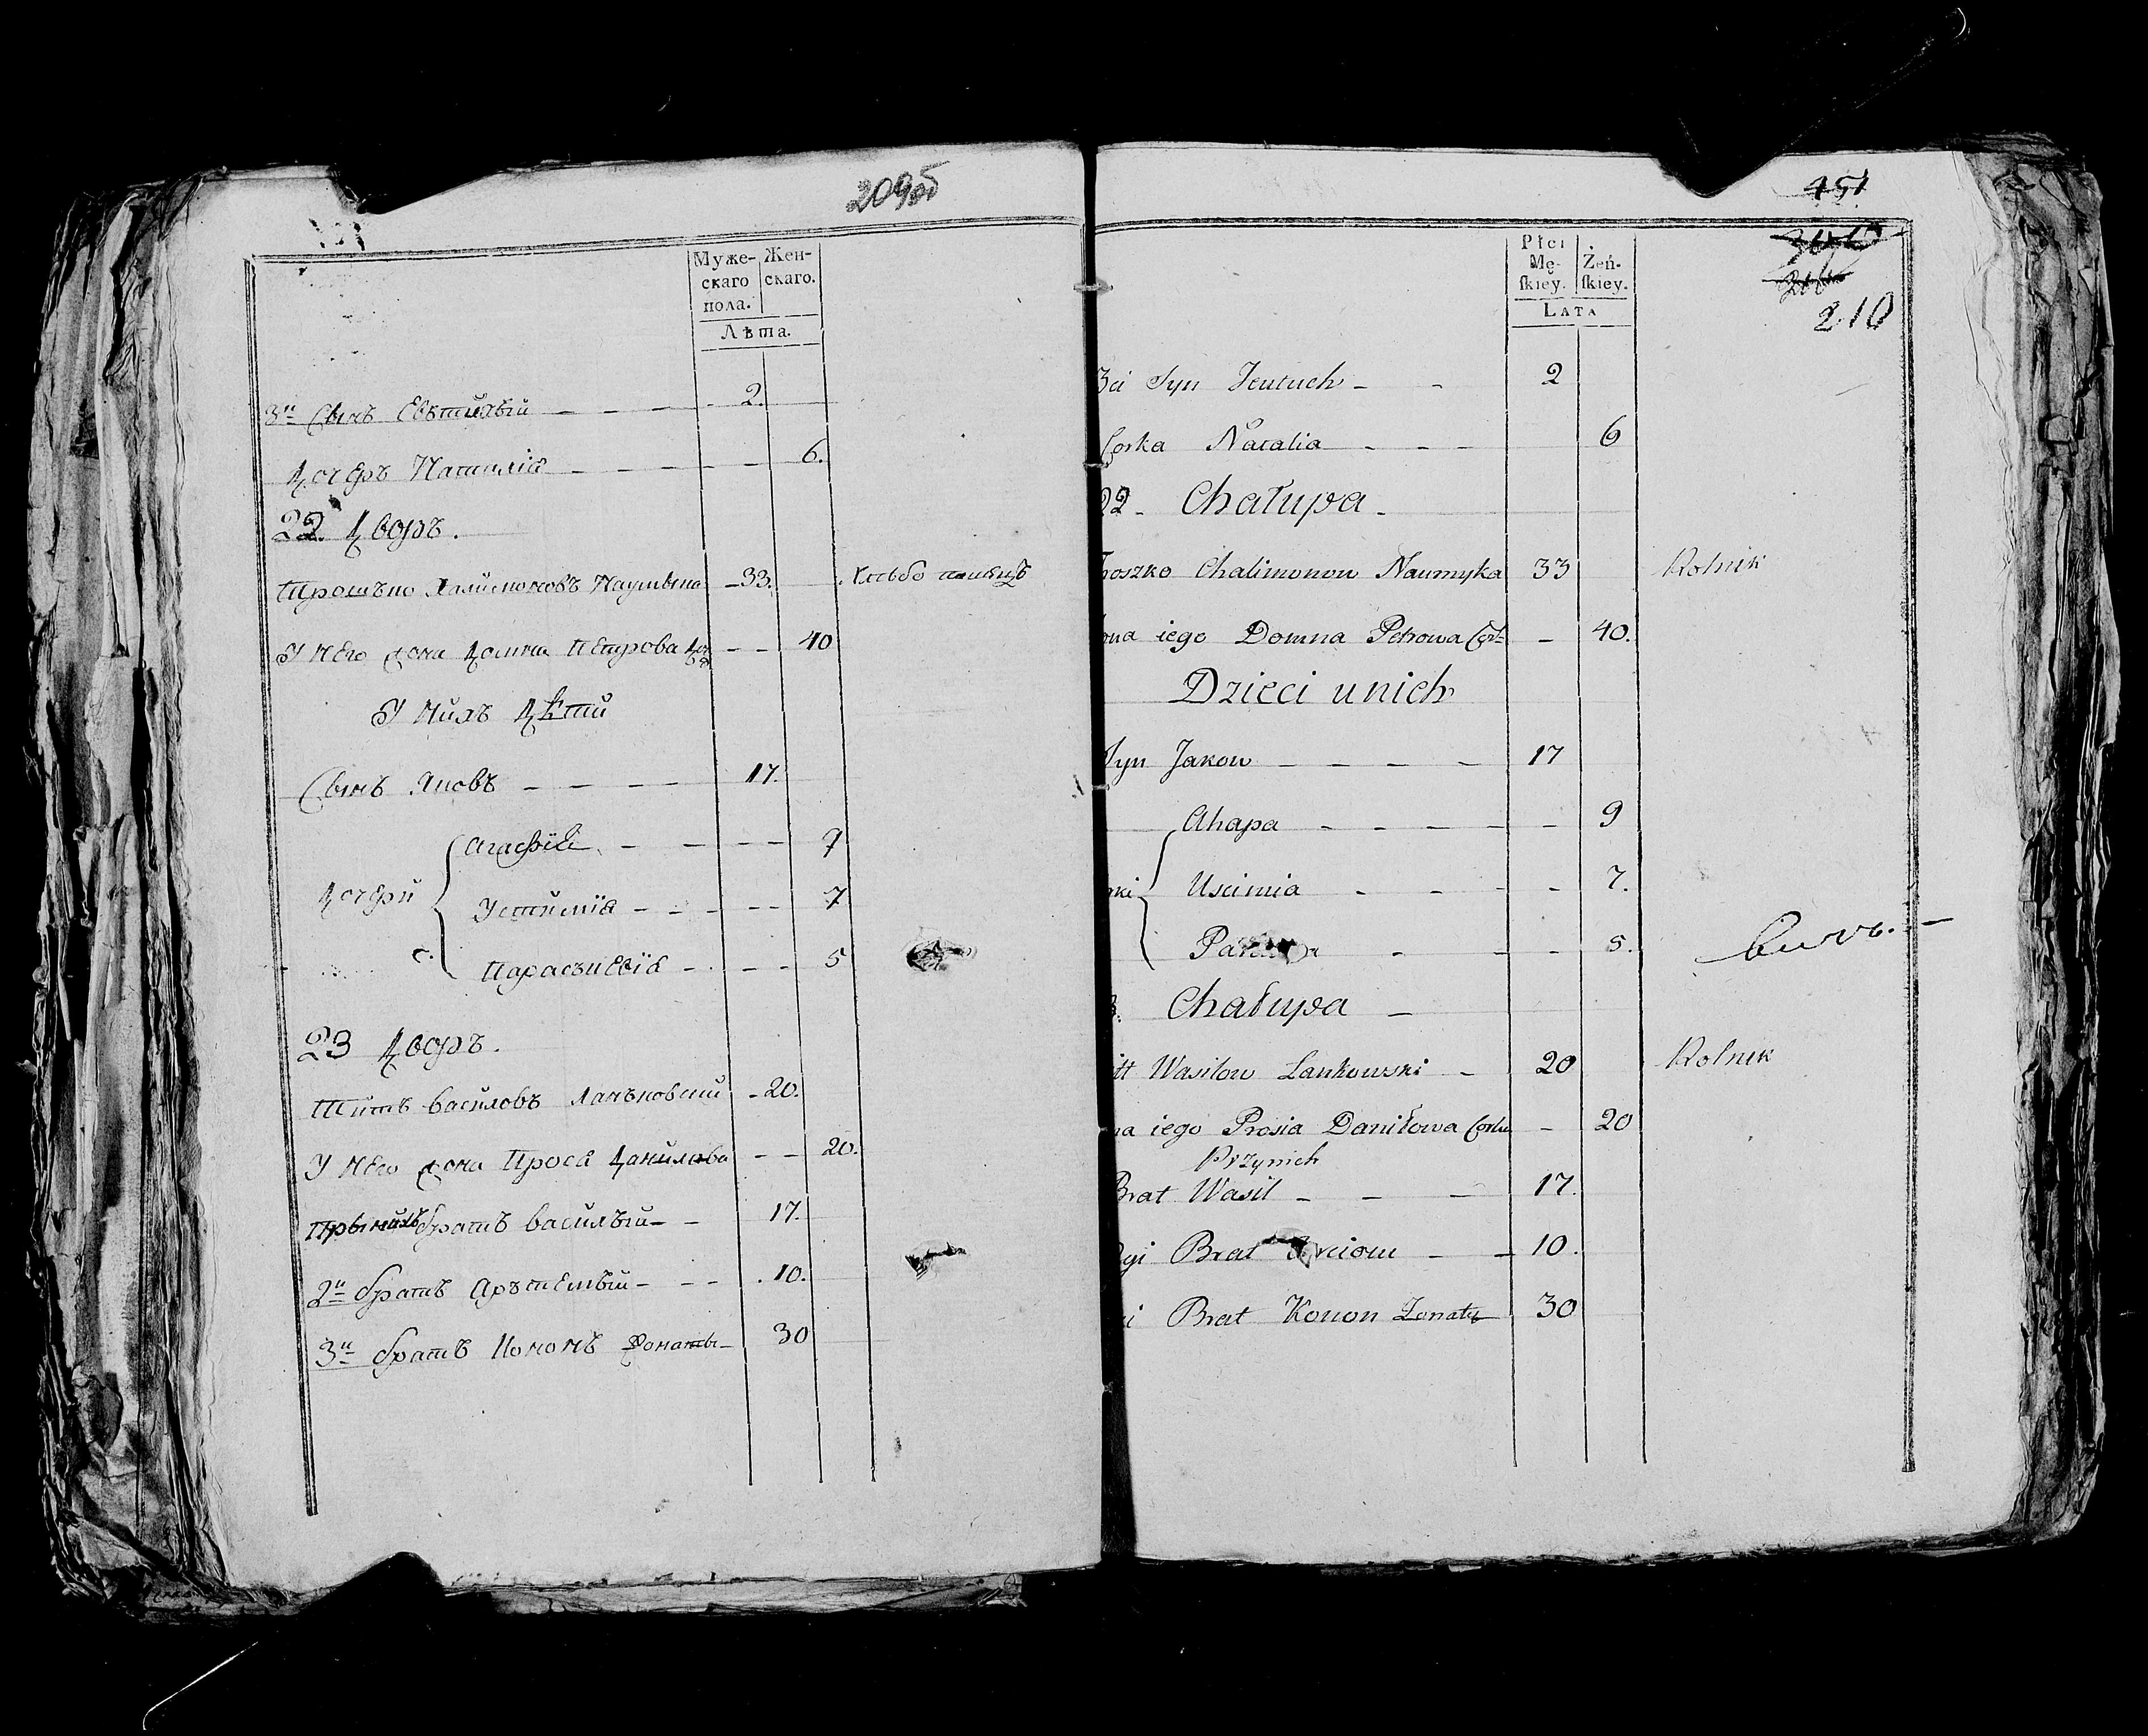 209об
Муже- Жен-
скаго скаго.
пола.
Лѣта.
3й Сынъ Евътихъй — — — 2.
Дочеръ Наталія — — — — — 6.
22. Дворъ.
Трошъко Халимоновъ Наумыка — 33. Хлѣбо пашецъ
У Него жона Домна Петрова Доч — — 40
У Нихъ Дѣти
Сынъ Яковъ — — — — 17.
Агафія — — — — 9
Дочери Устимія — — — — — 7
Парасъкевія — — — — 5
23 Дворъ.
Титъ Василовъ Ланъковский — 20.
У Него жона Прося Данилова — — 20.
При нихъ братъ Василъй — — 17.
2й братъ АръTемъй — — — 10.
3й братъ Кононъ Жонаты — 30
451
210
Płci
Mę- Żeń-
ſkiey. ſkiey.
LATA
3ci Syn Jeutuch — — 2
Corka Natalia — — — 6
22 — Chałupa —
oszko Chalimonow Naumyka 33 Rolnik
ona iego Domna Petrowa Cor: — 40.
Dzieci unich
Syn Jakow — — — — 17
Ahapa — — — — — 9
rki Uscimia — — — — 7.
Par — — — 5. —
3. Chałupa —
itt Wasilow Lankowski — 20 Rolnik
na iego Prosia Daniłowa Corka — 20
Przynich
Brat Wasil — — — 17.
gi Brat Arciom — — 10.
i Brat Konon Zonaty 30